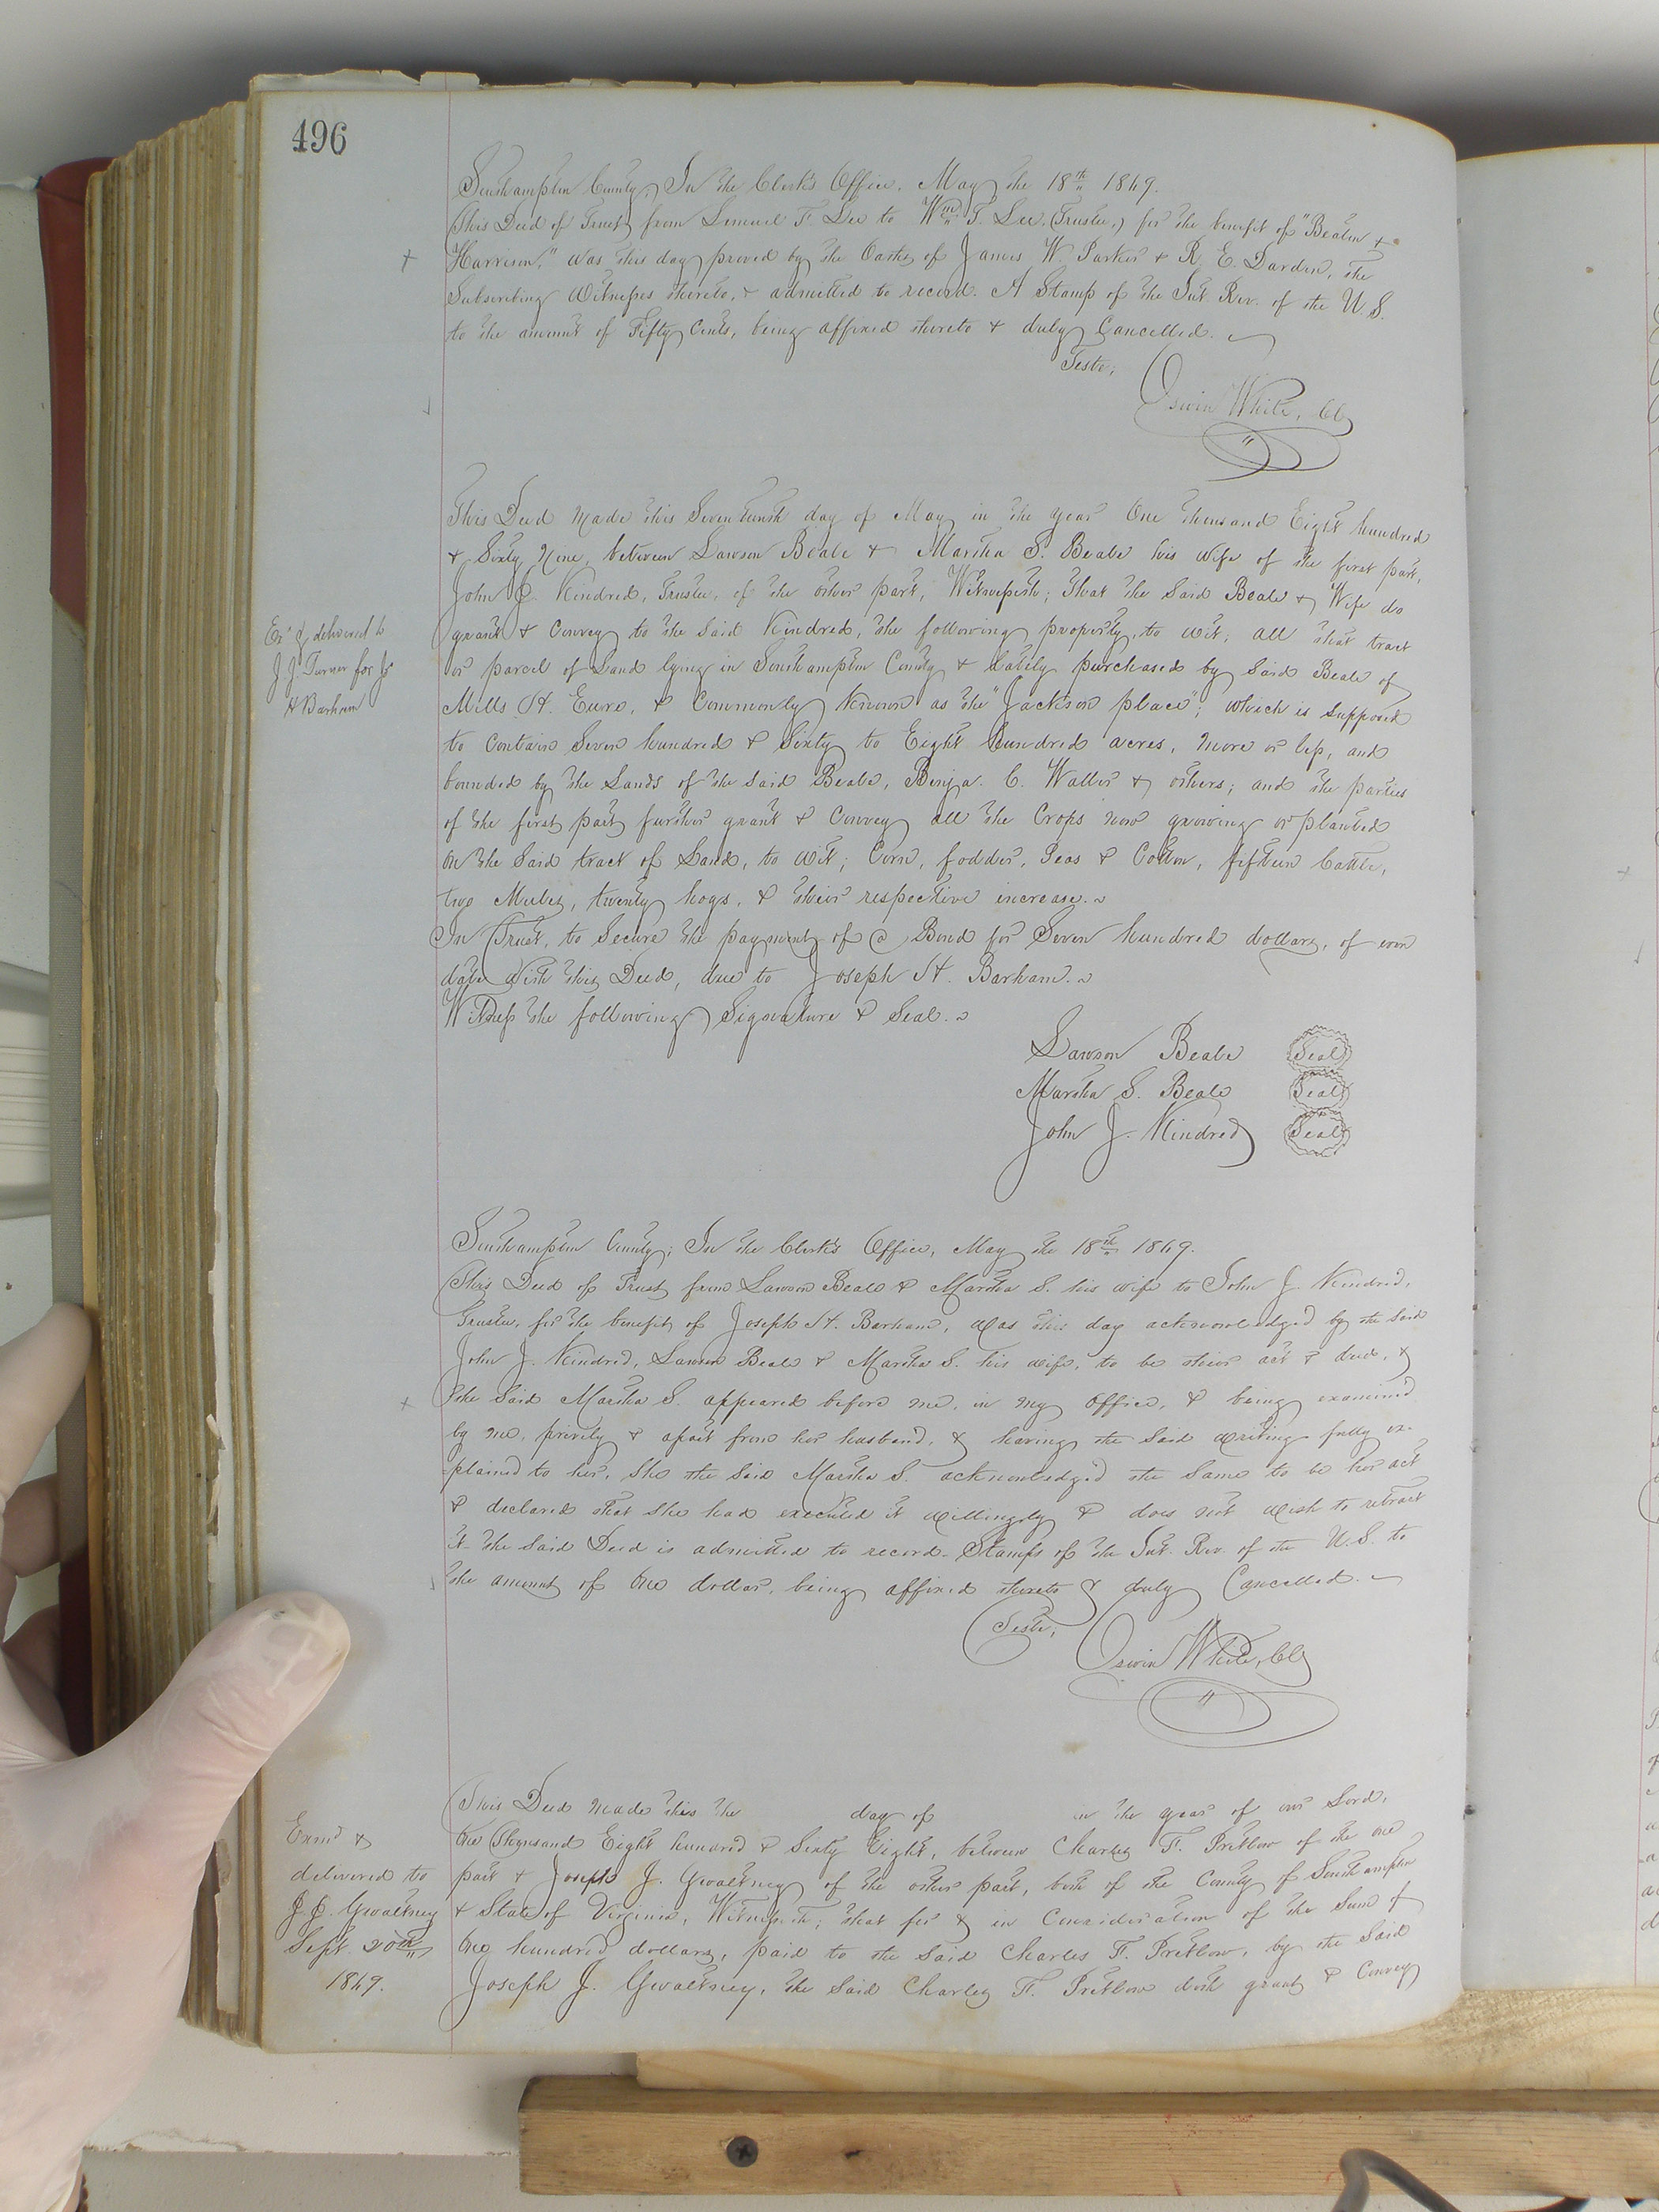 496
Southampton County; In the Clerk's Office, May the 18th 1869.
This Deed of Trust from Lemuel F. Lee to Wm T. Lee, (Trustee,) for the benefit of "Beaton &
Harrison," was this day proved by the Oaths of James W. Parker & R. E. Darden, the
Subscribing Witnesses thereto, & admitted to record. A Stamp of the Int. Rev. of the U. S.
to the amount of Fifty Cents, being affixed thereto & duly Cancelled.
Teste;
Oswin White, Clk
This Deed made this Seventeenth day of May in the year One thousand Eight hundred
& Sixty Nine, between Lawson Beale & Martha S. Beale his wife of the first part,
John J. Kindred, Trustee, of the other part, Witnesseth; That the Said Beale & Wife do
grant & Convey to the Said Kindred, the following property, to wit; all that tract
or parcel of Land lying in Southampton County & lately purchased by Said Beale of
Mills H. Eure, & Commonly Known as the "Jackson place"; which is Supposed
to Contain Seven hundred & Sixty to Eight hundred acres, more or less, and
bounded by the Lands of the Said Beale, Benja. C. Waller & others; and the parties
of the first part further grant & Convey all the Crops now growing or planted
on the Said tract of Land, to wit; Corn, fodder, Peas & Cotton, fifteen Cattle,
two Mules, twenty hogs, & their respective increase.
In Trust, to Secure the payment of a Bond for Seven hundred dollars, of even
date with this Deed, due to Joseph H. Barham.
Witness the following Signature & Seal.
Lawson Beale Seal
Martha S. Beale Seal
John J. Kindred Seal
Ex & delivered to
J J Turner for Js
H Barham
Southampton County; In the Clerk's Office, May the 18th 1869.
This Deed of Trust from Lawson Beale & Martha S. his wife to John J. Kindred,
Trustee, for the benefit of Joseph H. Barham, was this day acknowledged by the said
John J. Kindred, Lawson Beale & Martha S. his wife, to be their act & deed, &
the Said Martha S. appeared before me, in my office, & being examined
by me, privily & apart from her husband, & having the Said writing fully ex-
plained to her, She the Said Martha S. acknowledged the Same to be her act
& declared that She had executed it willingly & does not wish to retract
it. The Said Deed is admitted to record. Stamps of the Int. Rev. of the U. S. to
the amount of One dollar, being affixed thereto & duly Cancelled.
Teste;
Oswin White, Clk
This Deed made this the day of in the year of our Lord,
One Thousand Eight hundred & Sixty Eight, between Charles F. Pretlow of the one
part & Joseph J. Gwaltney of the other part, both of the County of Southampton
& State of Virginia, Witnesseth; that for & in Consideration of the Sum of
One hundred dollars, paid to the Said Charles F. Pretlow, by the Said
Joseph J. Gwaltney, the Said Charles F. Pretlow doth grant & Convey
Exmd &
delivered to
J. J. Gwaltney
Sept. 20th
1869.